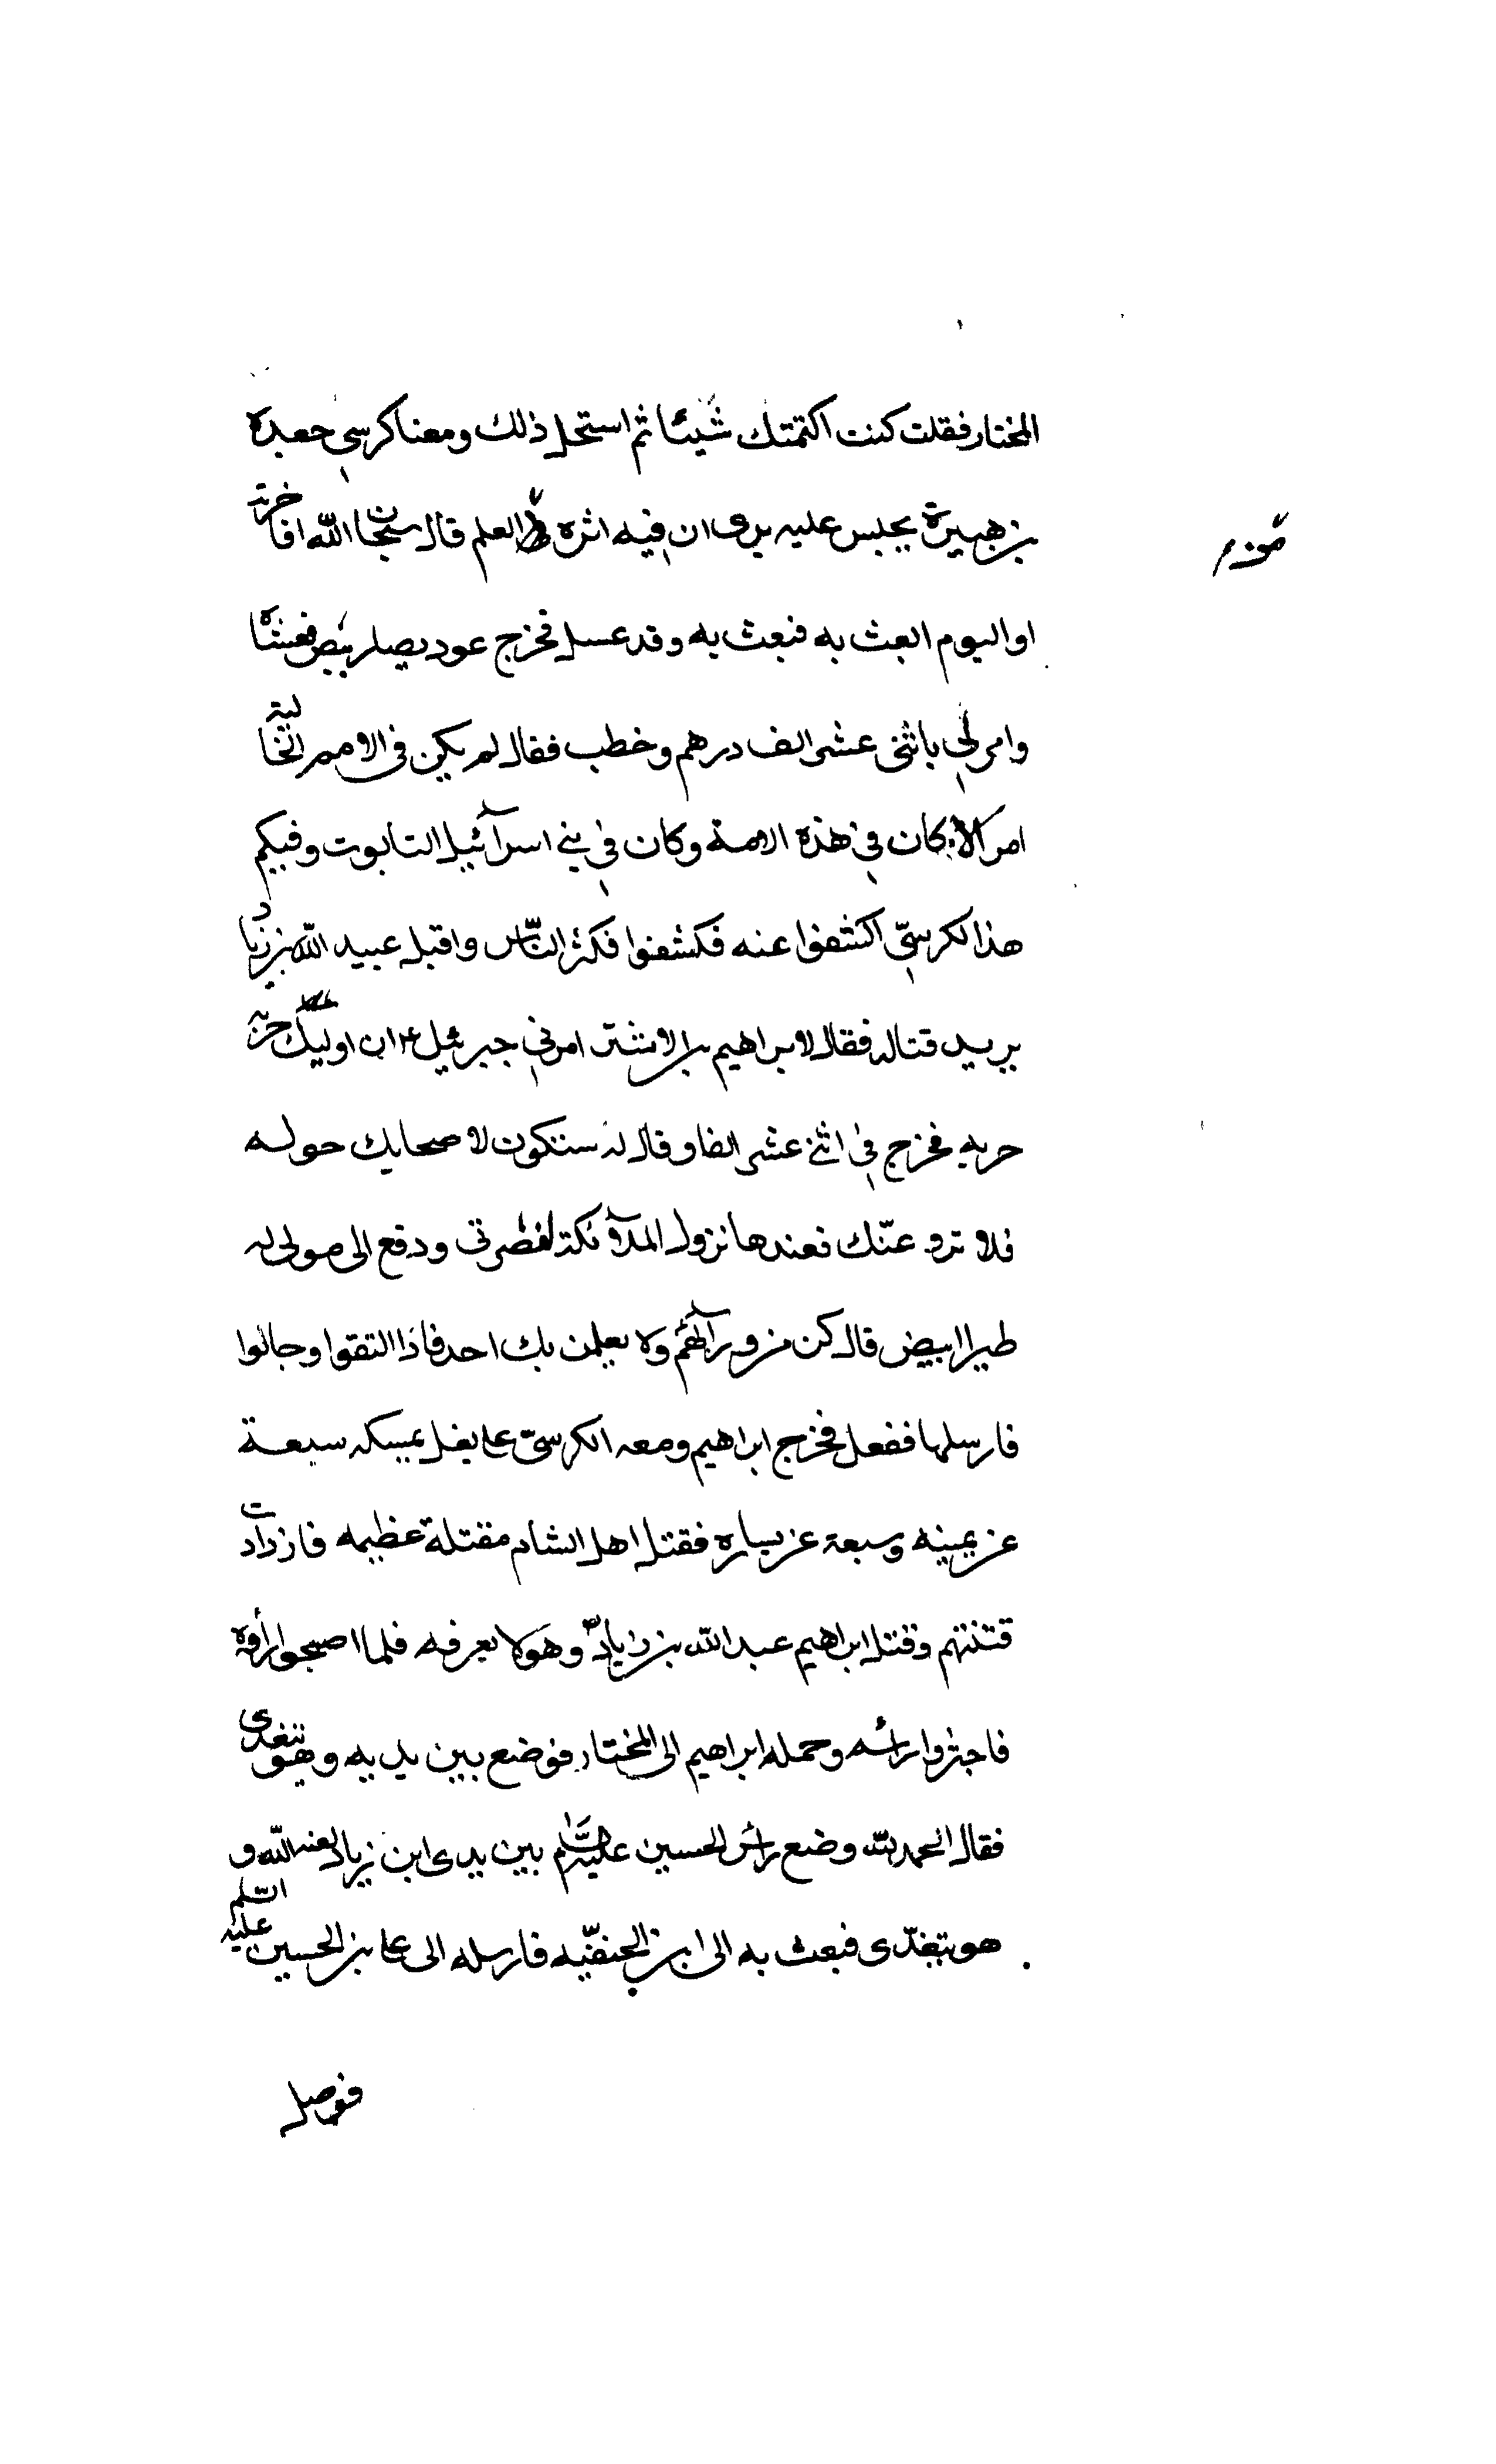 المختار فقلت كنت اكتمتك شيئا ثم استحل ذلك ومعنا كرسي جعدة
بن هبيرة يجلس عليه يرى ان فيه اثره العلم قال سبحان الله افاخرته
او اليوم ابعث به فبعث به وقد غسل فخرج عود
وامر لي باثنى عشر الف درهم وخطب فقال لم يكن في الامم الخالية
امر الا كان في هذه الامة وكان في بني اسرآئيل التابوت وفيكم
هذا لكرسيّ اكشفوا عنه فكشفوا فكثر النّاس واقبل عبيد اللّه بن زياد
يريد قتاله فقال لابراهيم بن الاشتر امرني جبرئيل ان
حربه فخرج في اثنى عشر الفا وقال له ستكون لاصحابك حوله
فلا عنّك فعندها نزول الملآئكة لنصرتى ودفع الى مولى له
طيرا ابيض قال كن من ورآئهم ولا يعلمن بك احد فاذا التقوا وجالوا
فارسلها ففعل فخرج ابراهيم ومعه الكرسىّ على بغل يمسكه سبعة
عن يمينه وسبعة عن يساره فقتل اهل الشام مقتلة عظيمه فازدادت
فتنتهم وقتل ابراهيم عبد الله بن زياد وهو لا يعرفه فلما اصبحوا رأوه
فاجتزوا رأسه وحمله ابراهيم الى المختار فوضع بين يديه وهو يتغدى
فقال الحمد لله وضع رأس الحسين عليه السّلم بين يدى ابن زياد لعنه اللّه و
هو يتغدّى فبعث به الى ابن الحنفيّه فارسله الى على بن الحسين عليه السّلم
فوصل